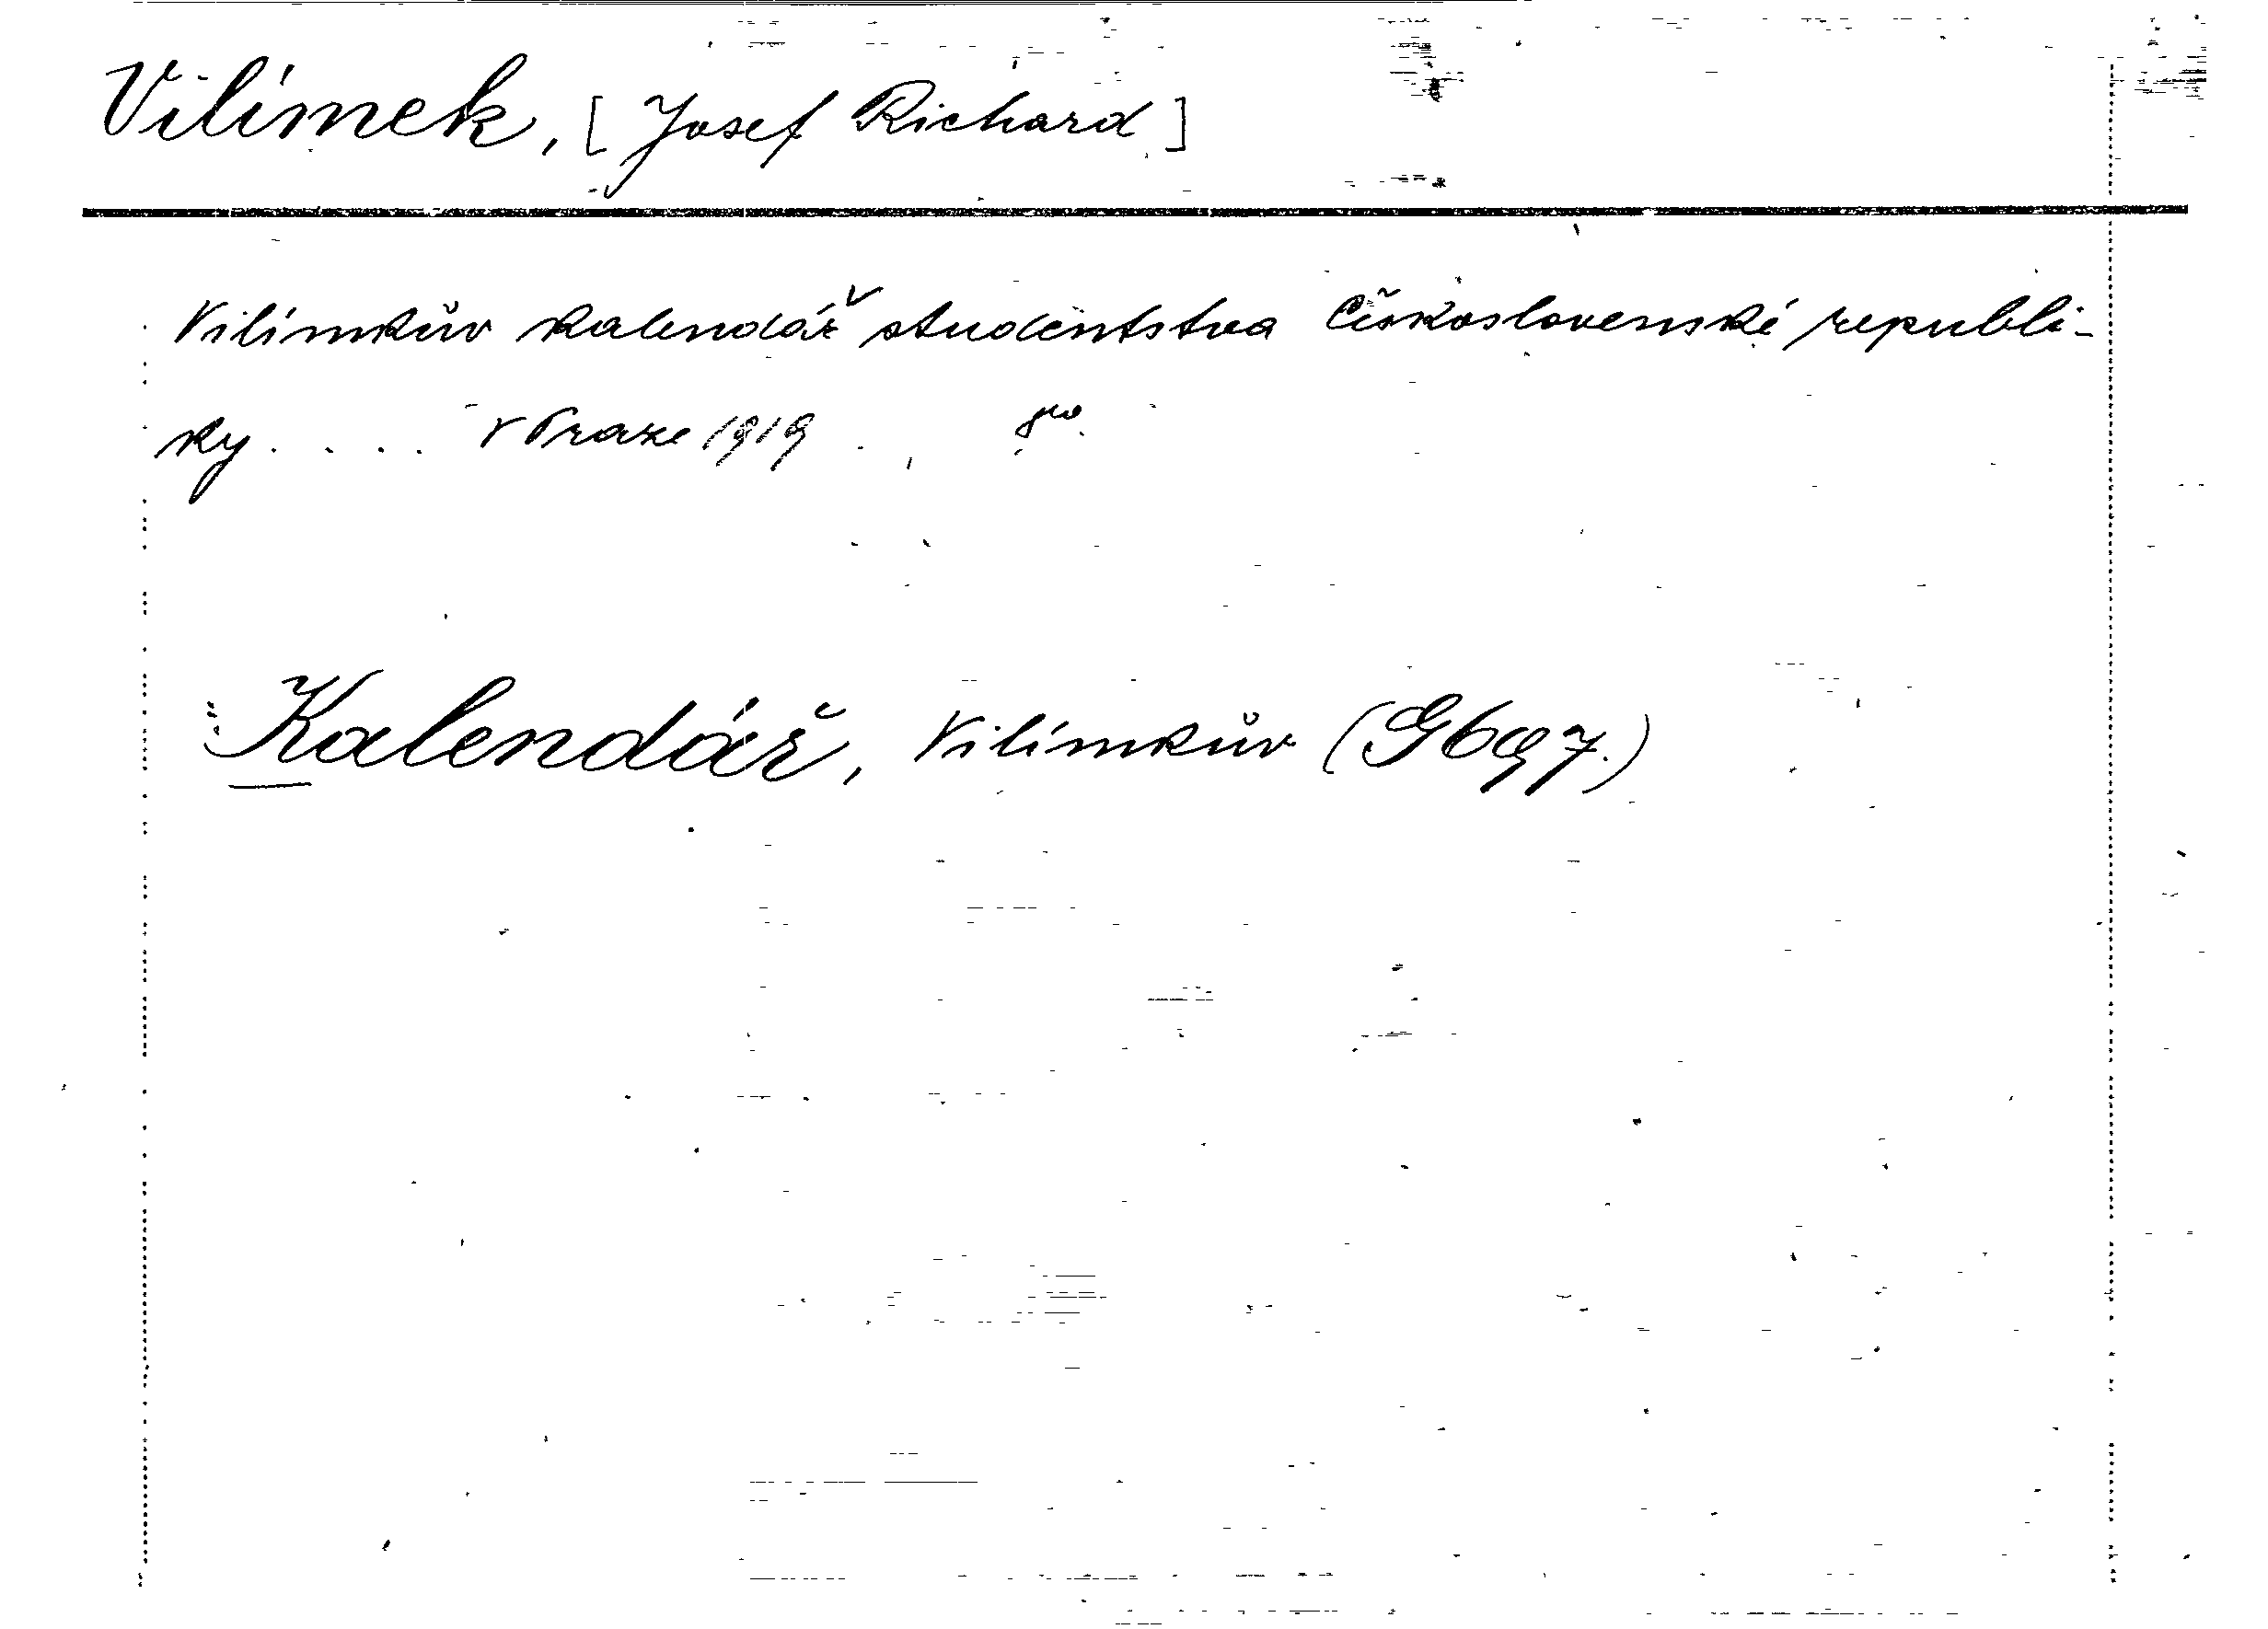 Vilímek, [Josef Richard]
Vilímkův kalendář studentstva Československé republi-
ky . . . . V Praze 1919 . , 8vo.
Kalendář, Vilímkův (G697.)